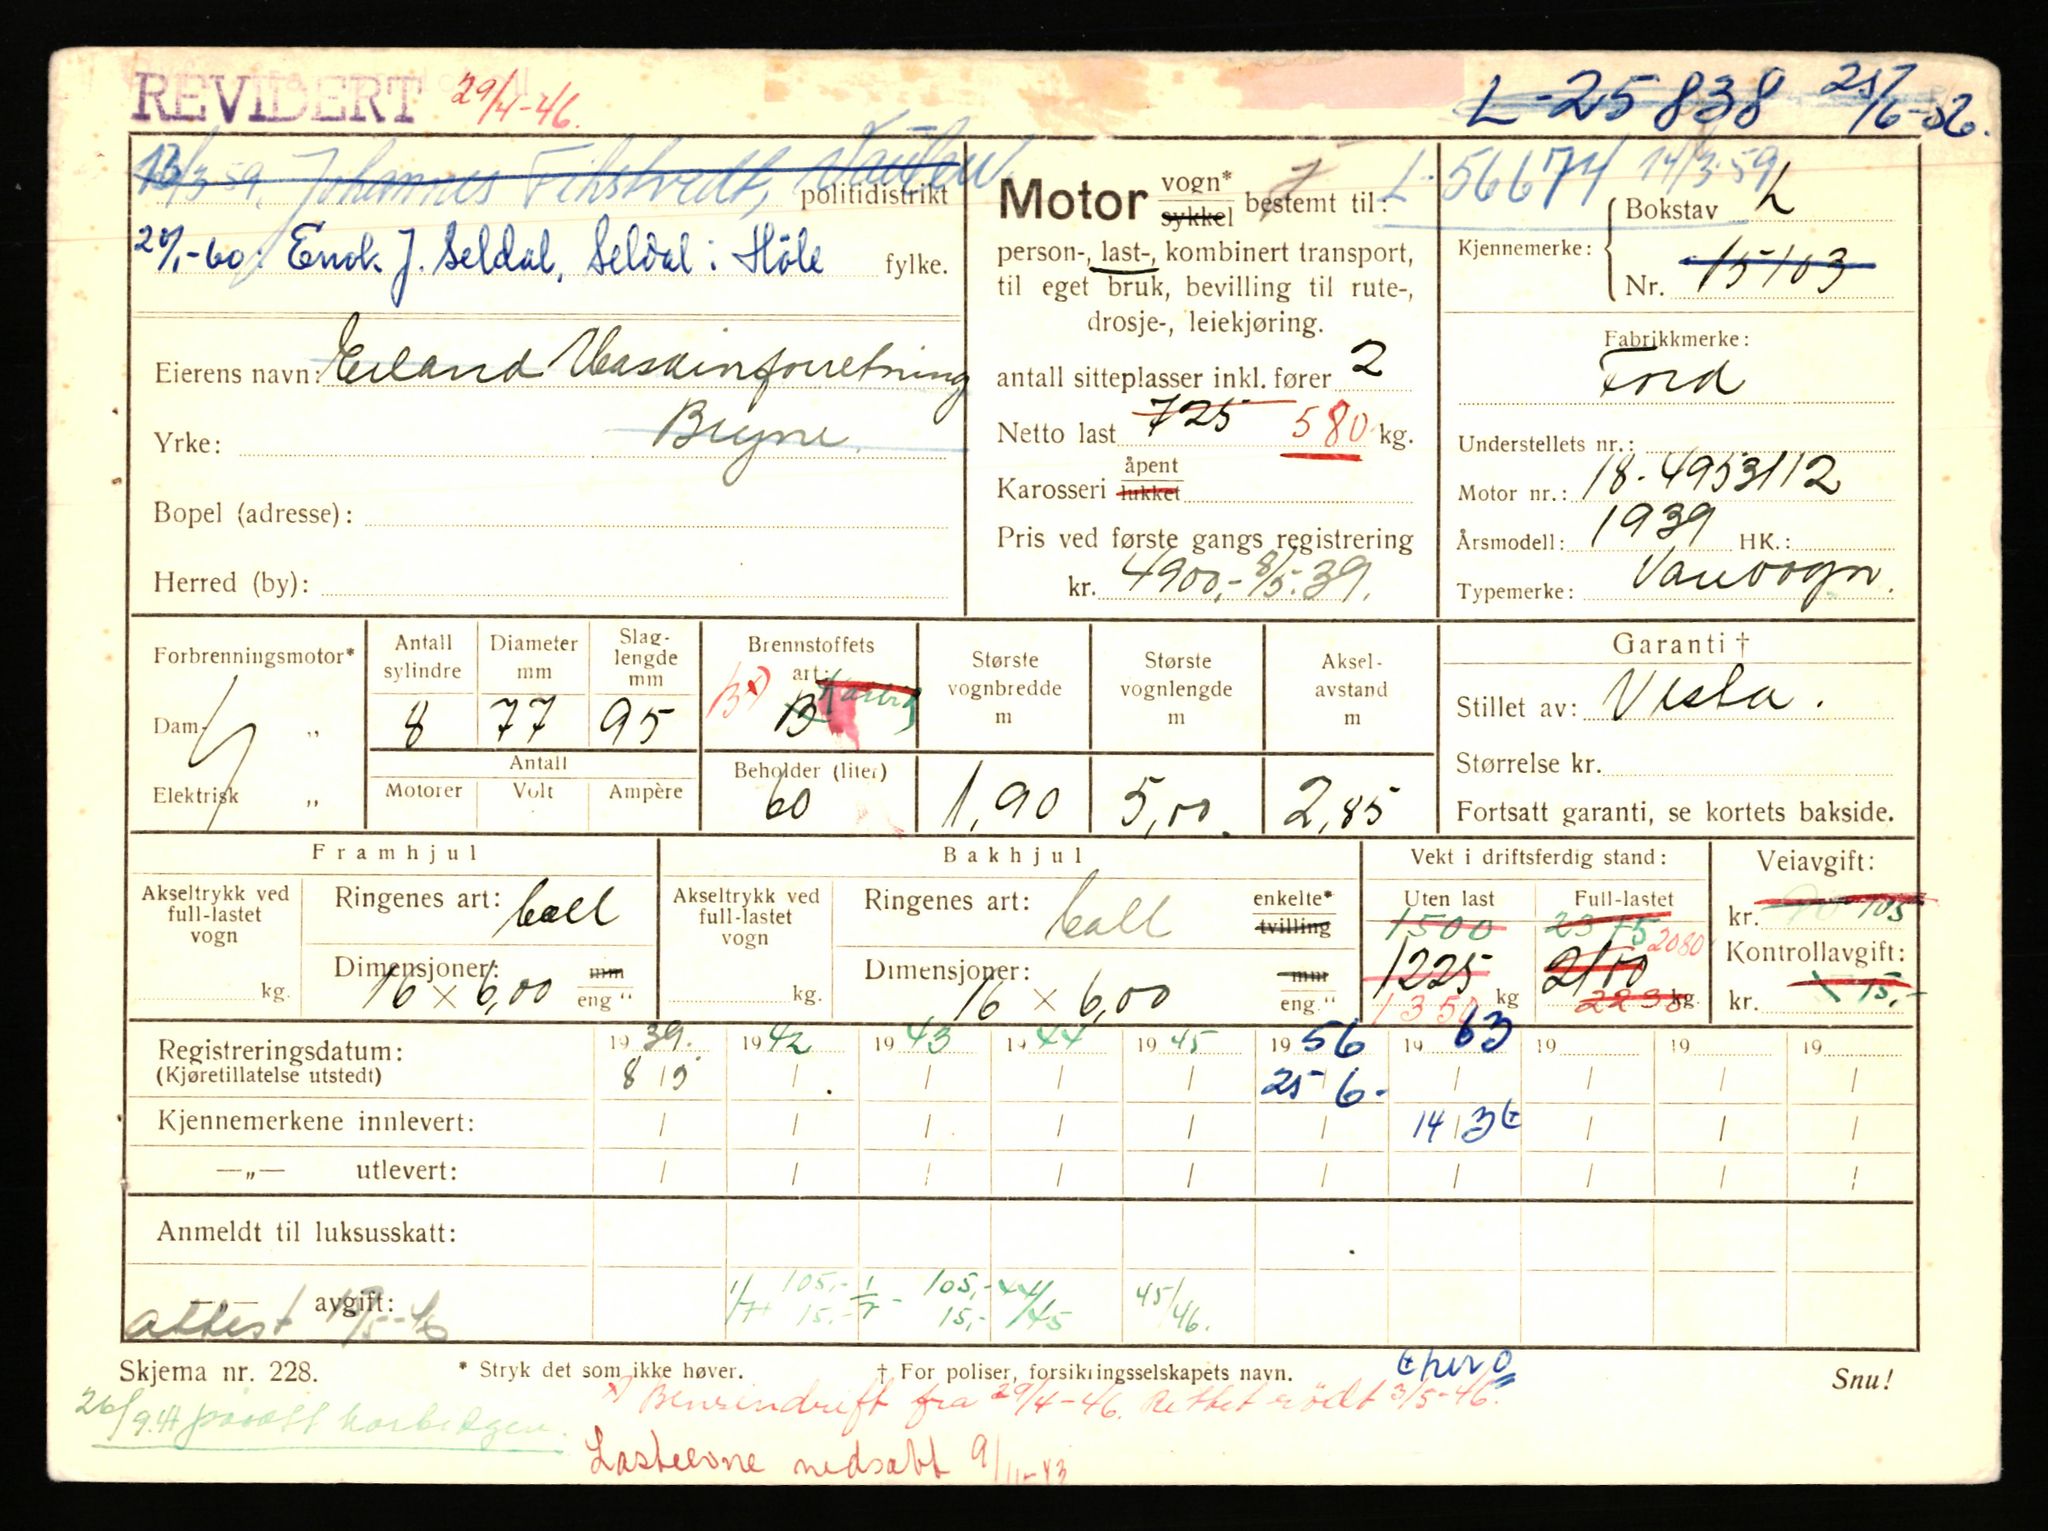 REVIDERT 29/4-46.
L-25838 25/6-56.
13/3 59. Johannes politidistrikt
20/1-60: J. Seldal, Seldal i Høle fylke.
Eierens navn: Erland Maskinforretning
Yrke: Bryne
Bopel (adresse):
Herred (by):
Motor vogn* sykkel bestemt til:
person-, last-, kombinert transport,
til eget bruk, bevilling til rute-,
drosje-, leiekjøring.
antall sitteplasser inkl. fører 2
Netto last 725 580 kg.
Karosseri åpent lukket
Pris ved første gangs registrering
kr. 4900,- 8/5-39.
L-56674 14/3-59
Kjennemerke: Bokstav L
Nr. 15103
Fabrikkmerke:
Ford
Understellets nr.:
Motor nr.: 18-4953112
Årsmodell: 1939 HK.:
Typemerke: Varevogn.
Forbrenningsmotor*
Dam- „
Elektrisk „
Antall sylindre 8
Diameter mm 77
Slag-lengde mm 95
Antall
Motorer Volt Ampère
Brennstoffets art: B x) B Karbid
Beholder (liter) 60
Største vognbredde m 1,90
Største vognlengde m 5,00
Aksel-avstand m 2,85
Garanti †
Stillet av: Vesta.
Størrelse kr.
Fortsatt garanti, se kortets bakside.
Framhjul
Akseltrykk ved full-lastet vogn kg.
Ringenes art: ball
Dimensjoner: 16 × 6,00 mm eng "
Bakhjul
Akseltrykk ved full-lastet vogn kg.
Ringenes art: ball enkelte* tvilling
Dimensjoner: 16 × 6,00 mm eng. "
Vekt i driftsferdig stand:
Uten last 1500 1225 1350 kg
Full-lastet 2375 2080 2150 2238 kg.
Veiavgift:
kr. 105
Kontrollavgift:
kr. 15,-
Registreringsdatum: 1939. 1942 1943 1944 1945 1956 1963 19 19 19
(Kjøretillatelse utstedt) 8/5 25/6-
Kjennemerkene innlevert: 14/3
—„— utlevert:
Anmeldt til luksusskatt:
—„— avgift: 105,- 15,- 105,- 15,- 44/45 45/46.
attest
Skjema nr. 228.
* Stryk det som ikke høver.
† For poliser, forsikringsselskapets navn.
Snu!
x) Bensindrift fra 29/4-46. Rettet rødt 3/5-46.
26/9.41 påsatt karbidgen.
Lasteevne nedsatt 9/11-43